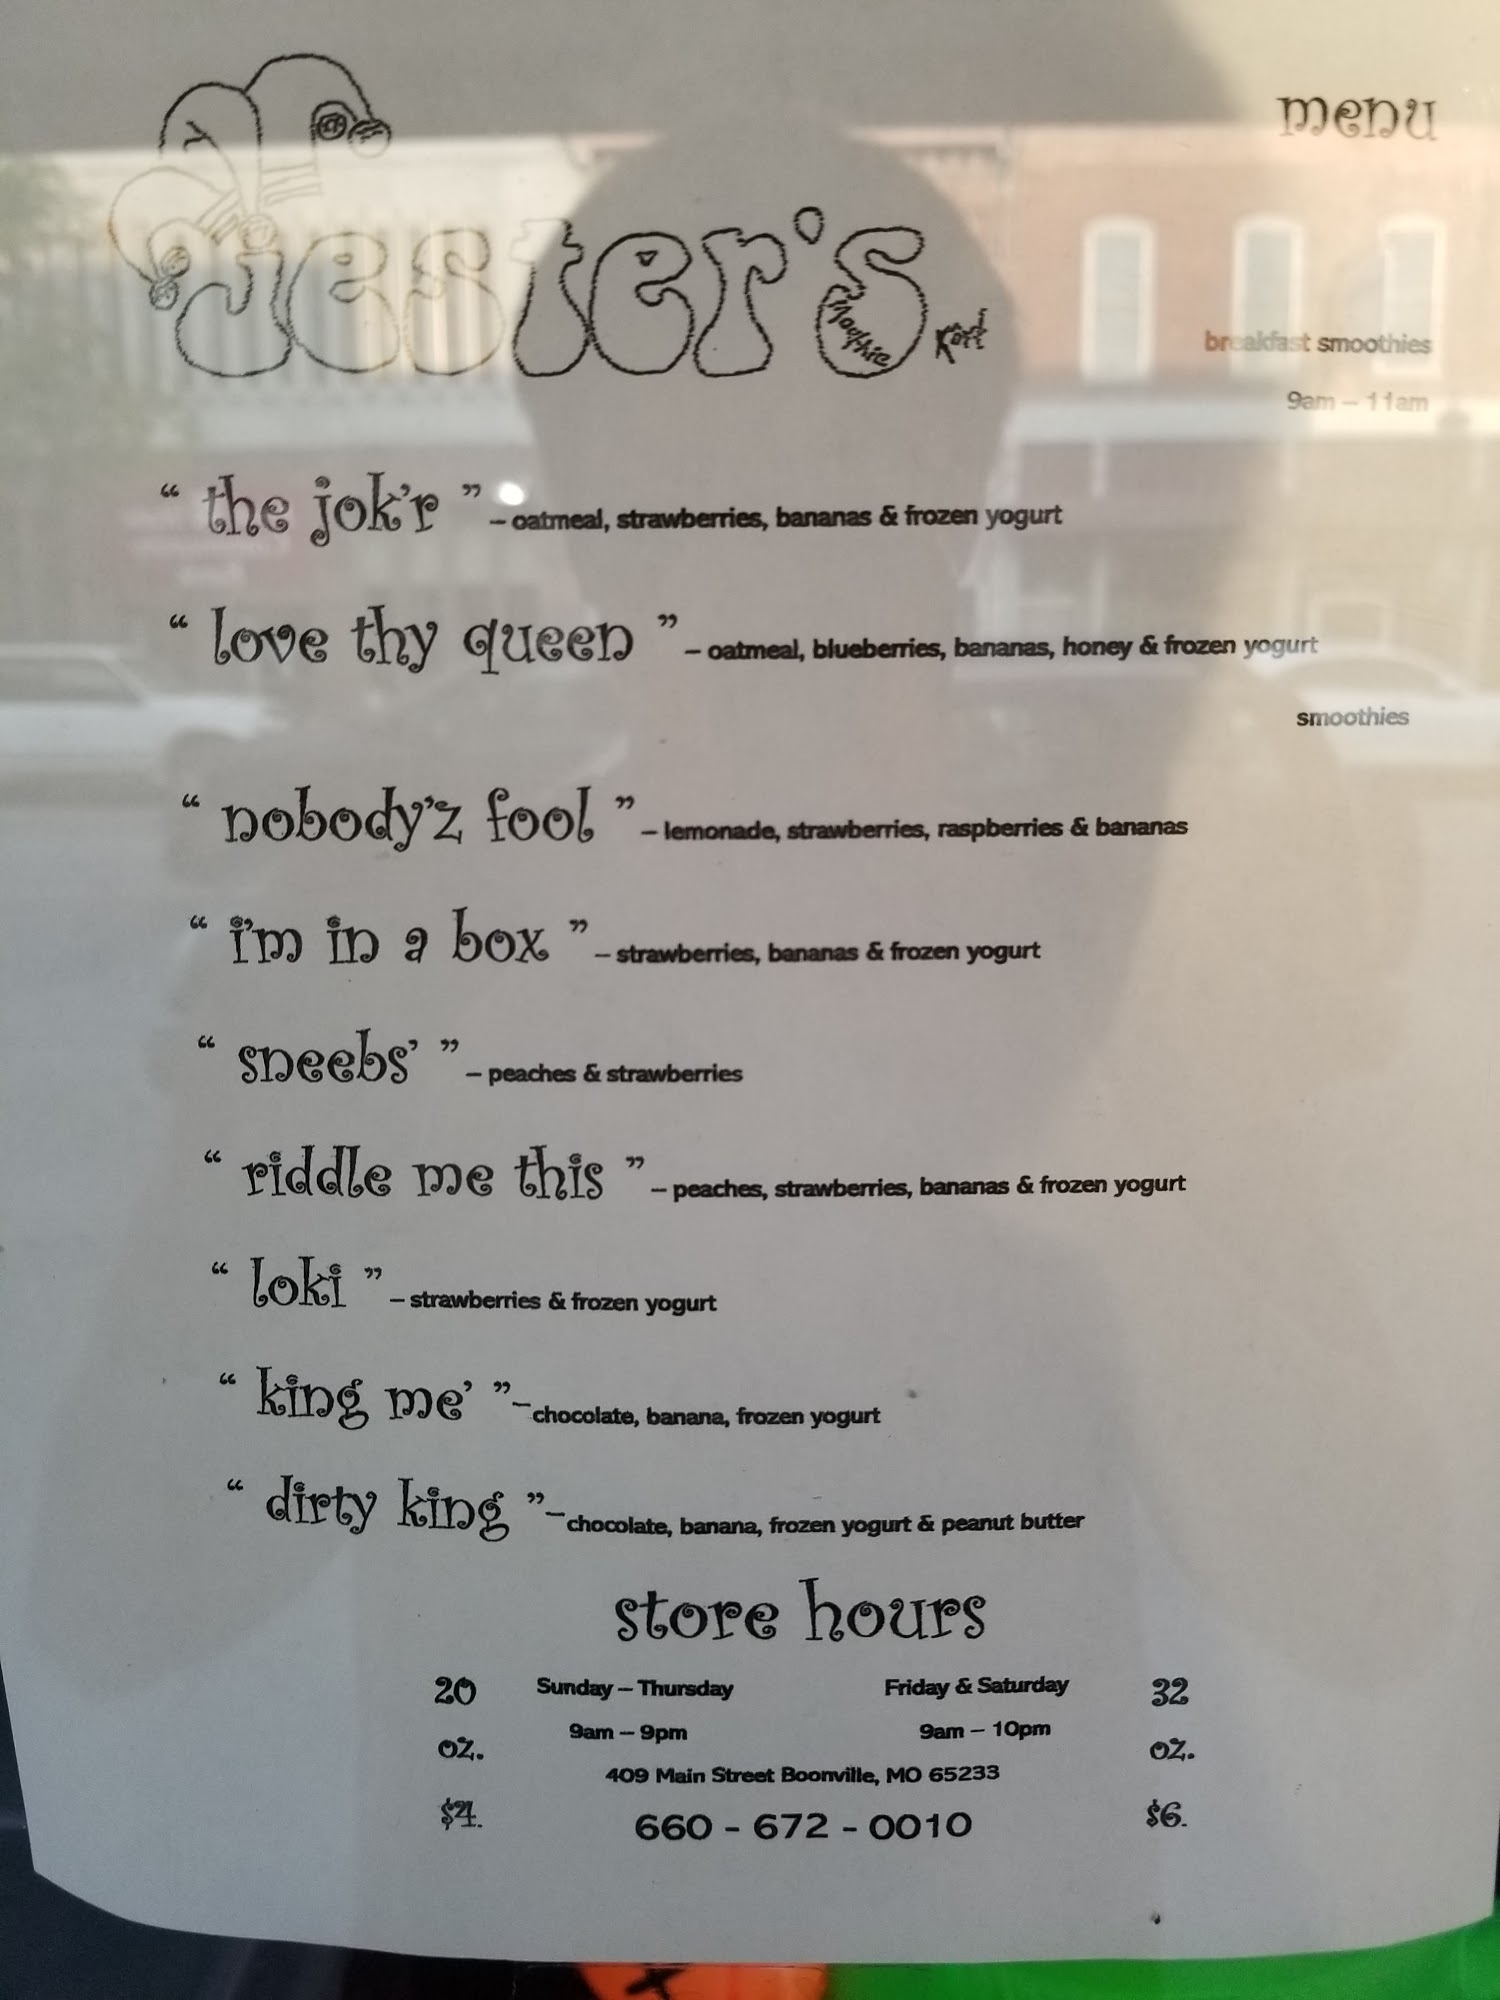 menu
Jester's
Smoothie
Kort
breakfast smoothies
9am – 11am
“ the jok'r ” – oatmeal, strawberries, bananas & frozen yogurt
“ love thy queen ” – oatmeal, blueberries, bananas, honey & frozen yogurt
smoothies
“ nobody'z fool ” – lemonade, strawberries, raspberries & bananas
“ i'm in a box ” – strawberries, bananas & frozen yogurt
“ sneebs' ” – peaches & strawberries
“ riddle me this ” – peaches, strawberries, bananas & frozen yogurt
“ loki ” – strawberries & frozen yogurt
“ king me' ” – chocolate, banana, frozen yogurt
“ dirty king ” – chocolate, banana, frozen yogurt & peanut butter
store hours
20 Sunday – Thursday Friday & Saturday 32
oz. 9am – 9pm 9am – 10pm oz.
409 Main Street Boonville, MO 65233
$4. 660 - 672 - 0010 $6.